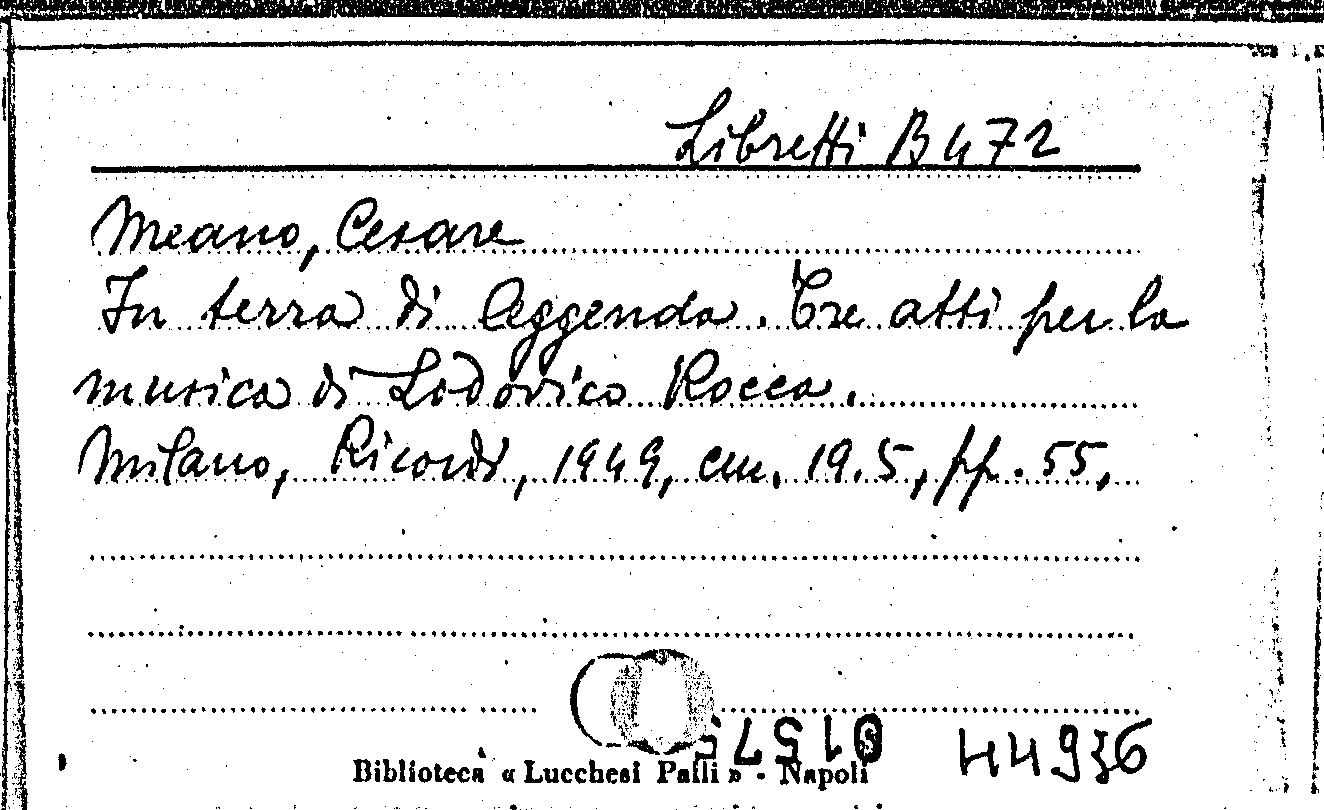 Libretti B 472
Meano, Cesare
In terra di leggenda. Tre atti per la
musica di Lodovico Rocca.
Milano, Ricordi, 1949, cm. 19.5, pp. 55,
44936
Biblioteca « Lucchesi Palli » - Napoli